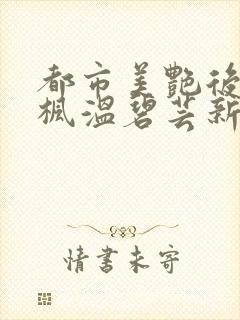 都市美艷後
楓溫碧芸新
情書未寄